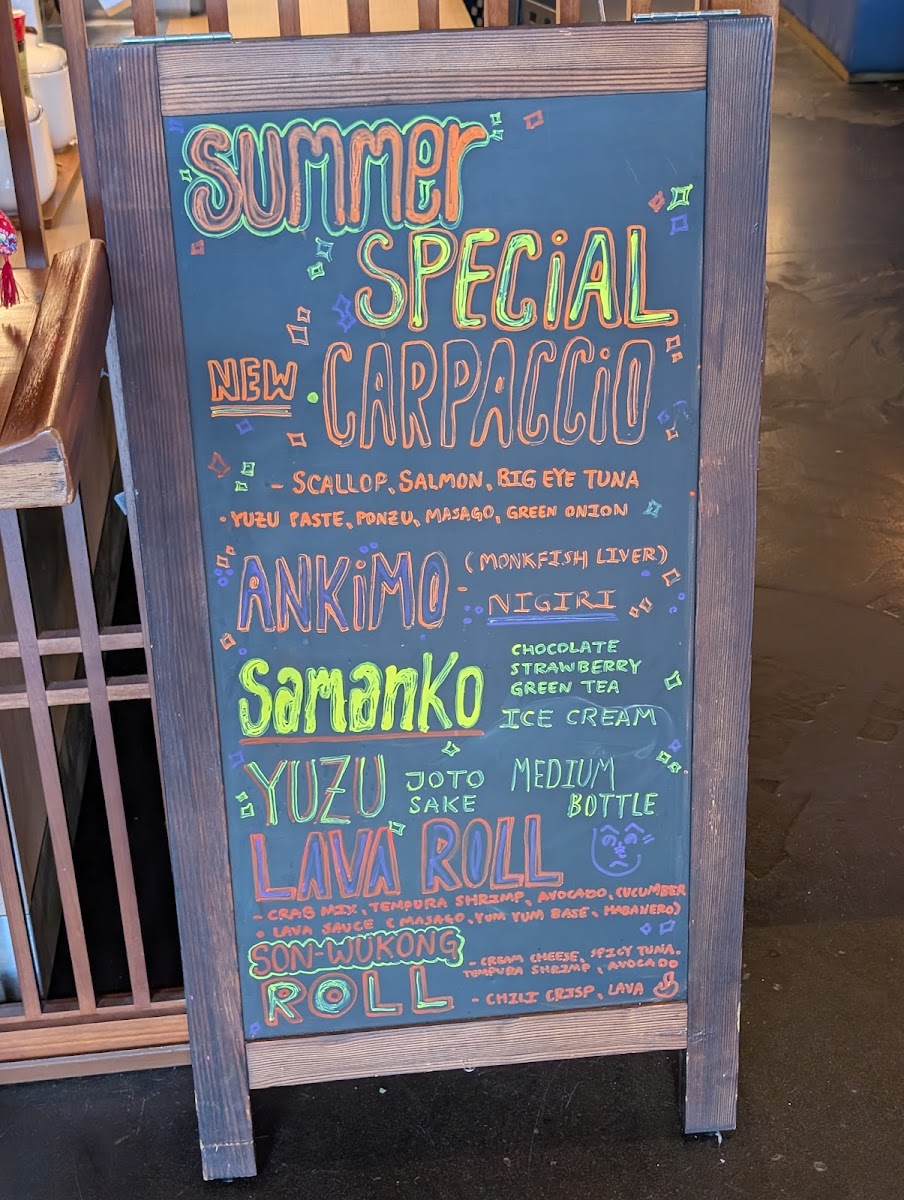 Summer
SPECiAL
NEW CARPACCiO
- SCALLOP, SALMON, BIG EYE TUNA
• YUZU PASTE, PONZU, MASAGO, GREEN ONION
ANKiMO - (MONKFISH LIVER)
NIGIRI
Samanko
CHOCOLATE
STRAWBERRY
GREEN TEA
ICE CREAM
YUZU JOTO SAKE MEDIUM BOTTLE
LAVA ROLL
- CRAB MIX, TEMPURA SHRIMP, AVOCADO, CUCUMBER
• LAVA SAUCE (MASAGO, YUM YUM BASE, HABANERO)
SON-WUKONG ROLL
- CREAM CHEESE, SPICY TUNA,
TEMPURA SHRIMP, AVOCADO
- CHILI CRISP, LAVA